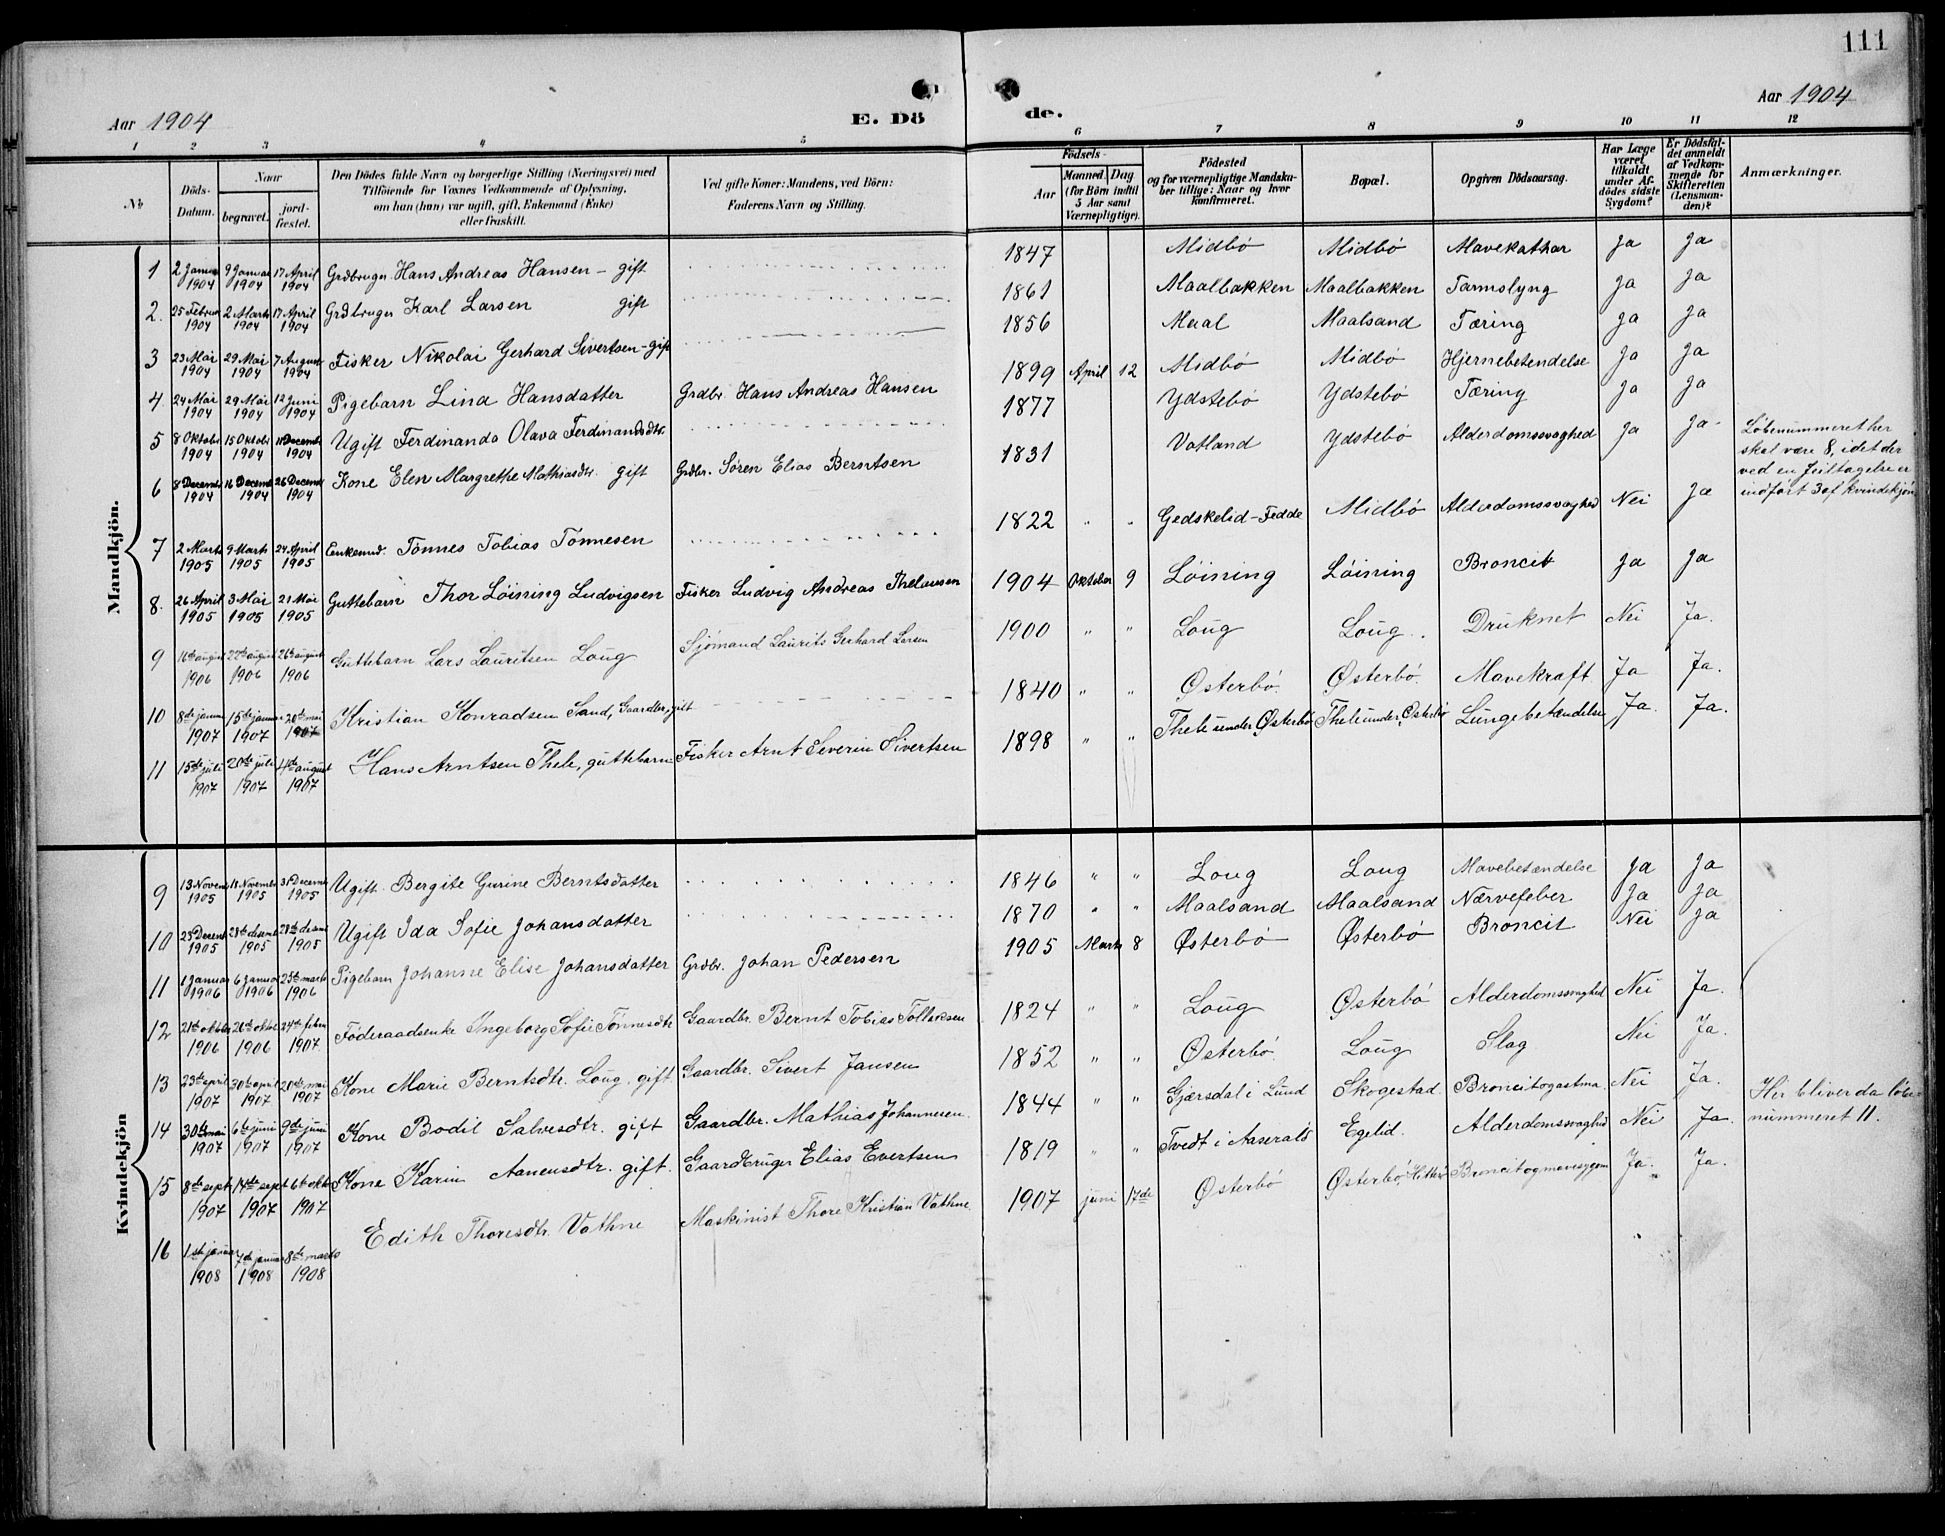 111
Aar 1904
E. Dö
de.
Aar 1904
1 2 3 4 5 6 7 8 9 10 11 12
No
Döds-Datum.
Naar
begravet.
jord-fæstet.
Den Dödes fulde Navn og borgerlige Stilling (Næringsvei) med
Tilföiende for Voxnes Vedkommende af Oplysning,
om han (hun) var ugift, gift, Enkemand (Enke)
eller fraskilt.
Ved gifte Koner: Mandens, ved Börn:
Faderens Navn og Stilling.
Födsels-
Aar
Maaned. Dag
(for Börn indtil
5 Aar samt
Værnepligtige).
Födested
og for værnepligtige Mandska-
ber tillige: Naar og hvor
konfirmeret.
Bopæl.
Opgiven Dödsaarsag.
Har Læge
været
tilkaldt
under Af-
dödes sidste
Sygdom?
Er Dödsfal-
det anmeldt
af Vedkom-
mende for
Skifteretten
(Lensman-
den)?
Anmærkninger.
Mandkjön.
1 2 Januar 1904 9 Januar 1904 17 April 1904 Grdbruger Hans Andreas Hansen - gift 1847 Midbö Midbö Mavekathar Ja Ja
2. 25 Februar 1904 2 Marts 1904 17 April 1904 Grdbruger Karl Larsen gift 1861 Maalbakken Maalbakken Tarmslyng Ja Ja
3 23 Mai 1904 29 Mai 1904 7 August 1904 Fisker Nikolai Gerhard Sivertsen - gift 1856 Maal Maalsand Tæring Ja Ja
4. 24 Mai 1904 29 Mai 1904 12 Juni 1904 Pigebarn Lina Hansdatter Grdbr. Hans Andreas Hansen 1899 April 12 Midbö Midbö Hjernebetendelse Ja Ja
5 8 Oktobr 1904 15 Oktobr 1904 11 Decembr 1904 Ugift Ferdinanda Olava Ferdinandsdtr. 1877 Ydstebö Ydstebö Tæring Ja Ja
6 8 Decembr 1904 16 Decembr 1904 26 Decembr 1904 Kone Elen Margrethe Mathiasdtr. gift Grdbr. Sören Elias Berntsen 1831 Vatland Ydstebö Alderdomssvaghed Ja Ja Löbenummeret her
skal være 8, idet der
ved en Feiltagelse er
indfört 3 af Kvindekjön
7 2 Marts 1905 9 Marts 1905 24 April 1905 Enkemd. Tönnes Tobias Tönnesen 1822 " " Gedskelid - Fedde Midbö Alderdomssvaghed Nei Ja
8. 26 April 1905 3 Mai 1905 21 Mai 1905 Guttebarn Thor Löining Ludvigsen Fisker Ludvig Andreas Thelausen 1904 Oktober 9 Löining Löining Broncit Ja Ja
9 16de august 1906 22de august 1906 26de august 1906 Guttebarn Lars Lauritsen Loug Sjömand Laurits Gerhard Larsen 1900 " " Loug Loug. Druknet Nei Ja.
10 8de januar 1907 15de januar 1907 20de mai 1907 Kristian Konradsen Sand, Gaardbr, gift 1840 " " Østerbö. Østerbö. Mavekræft Ja Ja.
11 15de juli 1907 20de juli 1907 4de august 1907 Hans Arntsen Thele, guttebarn Fisker Arnt Severin Sivertsen 1898 " " Thele under Østerbö Thele under Østerbö Lungebetændelse Ja. Ja.
Kvindekjön
9 13 Novem 1905 18 November 1905 31 December 1905 Ugift Bergite Gurine Berntsdatter 1846 " " Loug Loug Mavebetændelse Ja Ja
10 23 Decem 1905 28de decembr 1905 28de decem 1905 Ugift Ida Sofie Johansdatter 1870 " " Maalsand Maalsand Nærvefeber Ja Ja
11 1 Januar 1906 6 Januar 1906 25de marts 1906 Pigebarn Johanne Elise Johansdatter Grdbr. Johan Pedersen 1905 Marts 8 Østerbö Østerbö Broncit Nei Ja
12 21de oktbr 1906 26de oktbr 1906 24de febru 1907 Föderaadsenke Ingeborg Sofie Tönnesdtr Gaardbr. Bernt Tobias Tollaksen 1824 " " Loug Østerbö Alderdomssvaghed Nei Ja.
13 23de april 1907 30de april 1907 20de mai 1907 Kone Marie Berntsdtr. Loug, gift Gaardbr. Sivert Jansen 1852 " " Østerbö. Loug Slag Nei Ja.
14 30te mai 1907 6te juni 1907 9de juni 1907 Kone Bodil Salvesdtr. gift Gaardbr. Mathias Johannesen 1844 " " Gjærsdal i Lund Skogestad Broncit og astma Nei Ja. Her bliver da löbe-
nummeret 11.
15 8de sept 1907 14de sept 1907 6te oktbr 1907 Kone Karin Aanensdtr. gift. Gaardbruger Elias Evertsen 1819 " " Tvedt i Aaseral Egelid. Alderdomssvaghed Nei Ja.
16 1ste januar 1908 7de januar 1908 8de marts 1908 Edith Thoresdtr. Vathne Maskinist Thore Kristian Vathne 1907 juni 17de Østerbö Østerbö, Hitterö Broncit og mavesygdom Ja. Ja.